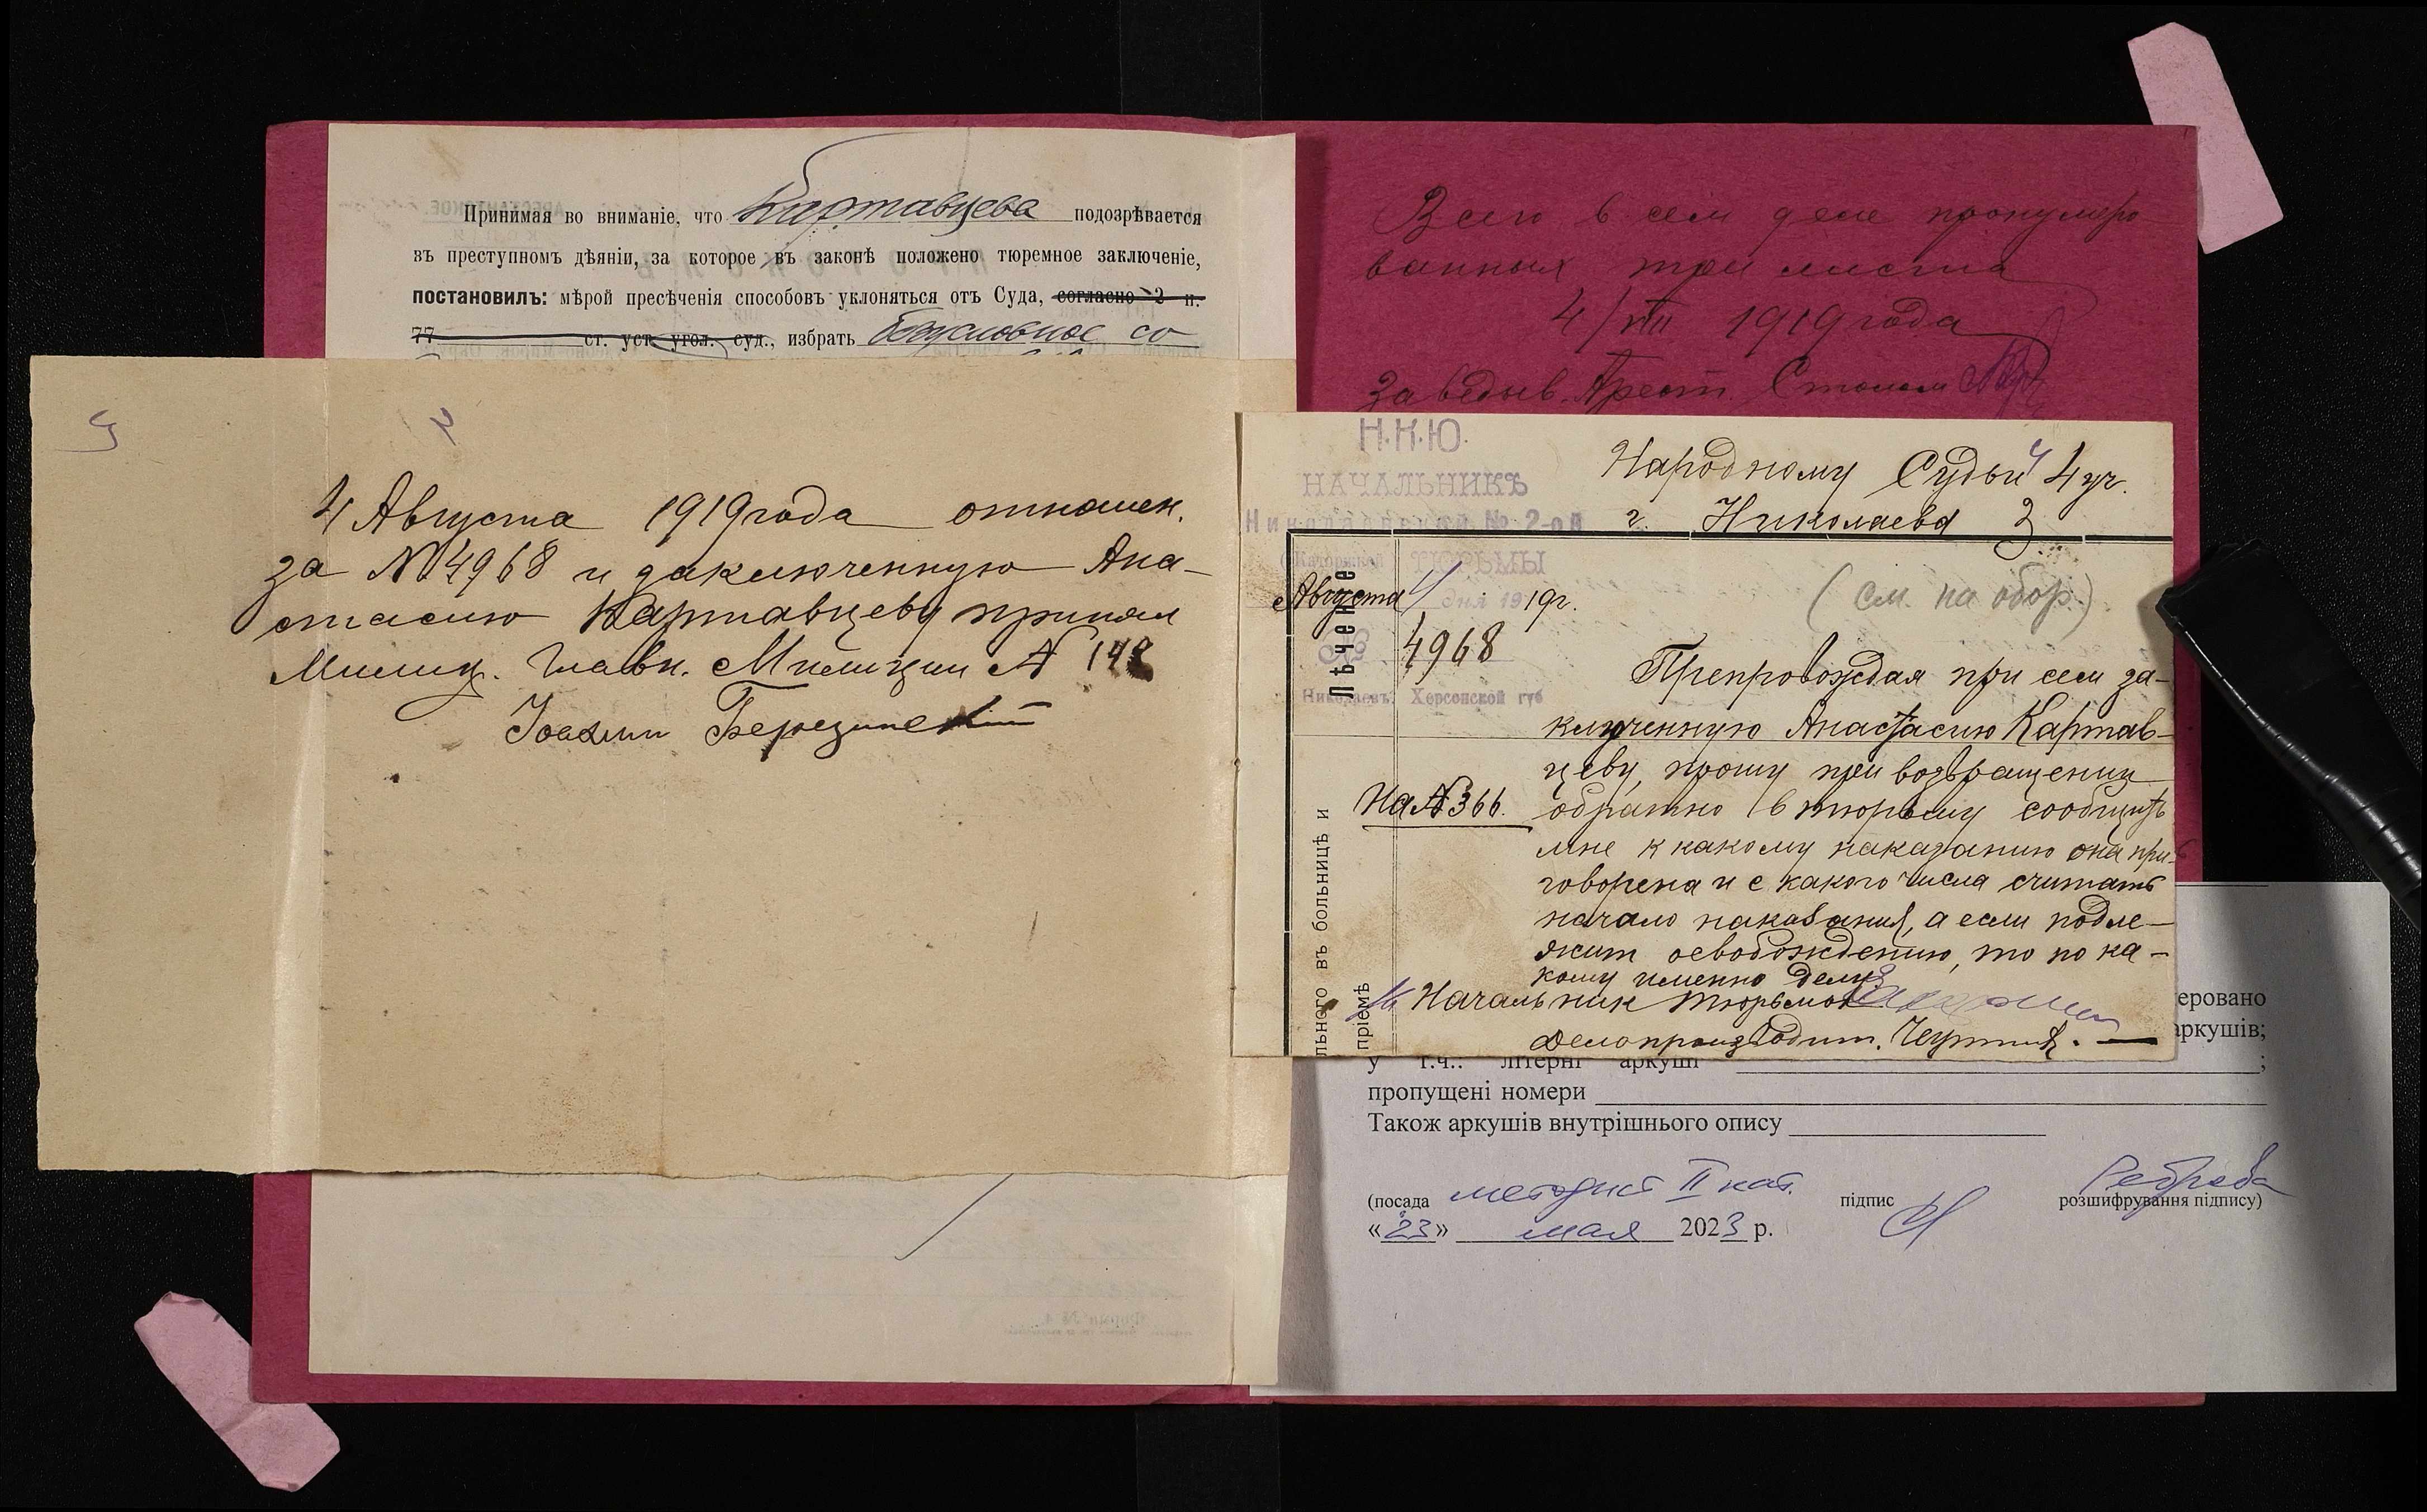 Принимая во вниманіе, что Картавцева подозрѣвается
въ преступномъ дѣяніи, за которое въ законѣ положено тюремное заключеніе,
постановилъ: мѣрой пресѣченія способовъ уклоняться отъ Суда, согласно 2 п.
77 ст. уст. угол. суд., избрать безусловное со
4 Августа 1919 года отношен.
за №4968 и заключенную Ана-
стасию Картавцеву принял
Милиц. Главн. Милиции №
Иоаким
Всего в сем деле пронумеро
ванных три листа
4/VIII 1919 года
Заведыв. Арест. Столом
Н.К.Ю.
НАЧАЛЬНИКЪ
Николаевской № 2-ой
ТЮРЬМЫ
Августа 4 дня 1919г.
№ 4968
Николаевъ, Херсонской губ
Народному Судьи 4 уч.
г. Николаева 3
(см. на обор.)
Препровождая при сем за-
ключенную Анастасию Картав-
цеву, прошу при возвращении
На №366. обратно в тюрьму сообщить
мне к какому наказанию она при-
говорена и с какого числа считать
начало наказания, а если подле-
жит освобождению, то по ка-
кому именно делу
Начальник тюрьмы
Делопроизводит.
Лѣченіе
льного въ больницѣ и
пріемѣ
еровано
аркушів;
у т.ч.: літерні аркуші ;
пропущені номери
Також аркушів внутрішнього опису
(посада методист II кат. підпис Реброва розшифрування підпису)
«23» мая 2023 р.